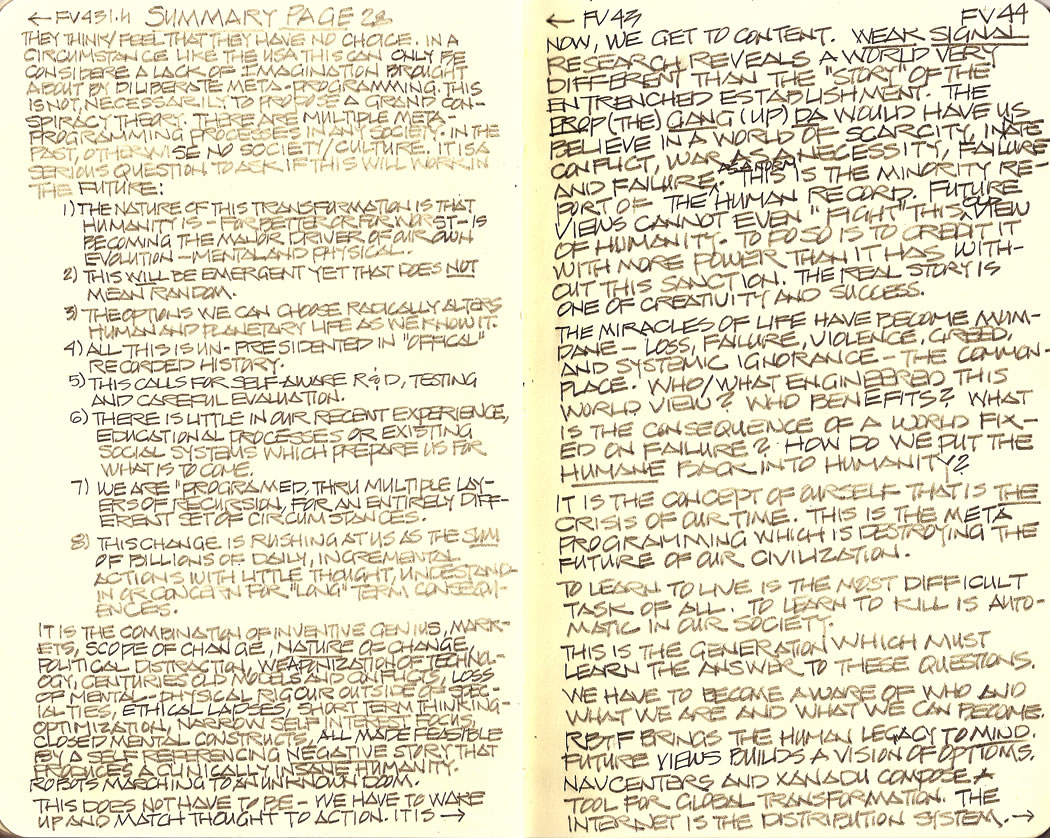 ← FV431.4 SUMMARY PAGE 28
THEY THINK/FEEL THAT THEY HAVE NO CHOICE. IN A
CIRCUMSTANCE LIKE THE USA THIS CAN ONLY BE
CONSIDERE A LACK OF IMAGINATION BROUGHT
ABOUT BY DILIBERATE META-PROGRAMMING. THIS
IS NOT, NECESSARILY TO PROPOSE A GRAND CON-
SPIRACY THEORY. THERE ARE MULTIPLE META-
PROGRAMMING PROCESSES IN ANY SOCIETY. IN THE
PAST, OTHERWISE NO SOCIETY/CULTURE. IT IS A
SERIOUS QUESTION TO ASK IF THIS WILL WORK IN
THE FUTURE:
1) THE NATURE OF THIS TRANSFORMATION IS THAT
HUMANITY IS - FOR BETTER OR FOR WORST - IS
BECOMING THE MAJOR DRIVER OF OUR OWN
EVOLUTION - MENTAL AND PHYSICAL.
2) THIS WILL BE EMERGENT YET THAT DOES NOT
MEAN RANDOM.
3) THE OPTIONS WE CAN CHOOSE RADICALLY ALTERS
HUMAN AND PLANETARY LIFE AS WE KNOW IT.
4) ALL THIS IS UN-PRESIDENTED IN "OFFICAL"
RECORDED HISTORY.
5) THIS CALLS FOR SELF-AWARE R&D, TESTING
AND CAREFUL EVALUATION.
6) THERE IS LITTLE IN OUR RECENT EXPERIENCE,
EDUCATIONAL PROCESSES OR EXISTING
SOCIAL SYSTEMS WHICH PREPARE US FOR
WHAT IS TO COME.
7) WE ARE "PROGRAMED, THRU MULTIPLE LAY-
ERS OF RECURSION, FOR AN ENTIRELY DIFF-
ERENT SET OF CIRCUMSTANCES.
8) THIS CHANGE IS RUSHING AT US AS THE SUM
OF BILLIONS OF DAILY, INCREMENTAL
ACTIONS WITH LITTLE THOUGHT, UNDESTAND-
IN OR CONCERN FOR "LONG" TERM CONSEQU-
ENCES.
IT IS THE COMBINATION OF INVENTIVE GENIUS, MARK-
ETS, SCOPE OF CHANGE, NATURE OF CHANGE,
POLITICAL DISTRACTION, WEAPONIZATION OF TECHNOL-
OGY, CENTURIES OLD MODELS AND CONFLICTS, LOSS
OF MENTAL-PHYSICAL RIGOUR OUTSIDE OF SPEC-
IALTIES, ETHICAL LAPSES, SHORT TERM THINKING-
OPTIMIZATION, NARROW SELF INTEREST FOCUS,
CLOSED MENTAL CONSTRUCTS, ALL MADE FEASIBLE
BY A SELF REFERENCING NEGATIVE STORY THAT
PRODUCES A CLINICALLY INSANE HUMANITY.
ROBOTS MARCHING TO AN UNKNOWN DOOM.
THIS DOES NOT HAVE TO BE - WE HAVE TO WAKE
UP AND MATCH THOUGHT TO ACTION. IT IS →
← FV43 FV44
NOW, WE GET TO CONTENT. WEAK SIGNAL
RESEARCH REVEALS A WORLD VERY
DIFFERENT THAN THE "STORY" OF THE
ENTRENCHED ESTABLISHMENT. THE
PROP(THE) GANG (UP) DA WOULD HAVE US
BELIEVE IN A WORLD OF SCARCITY, INATE
CONFLICT, WAR AS A NECESSITY, FAILURE
AND FAILURE AS A NORM. THIS IS THE MINORITY RE-
PORT OF THE HUMAN RECORD. FUTURE
VIEWS CANNOT EVEN "FIGHT" THIS OLD VIEW
OF HUMANITY. TO DO SO IS TO CREDIT IT
WITH MORE POWER THAN IT HAS WITH-
OUT THIS SANCTION. THE REAL STORY IS
ONE OF CREATIVITY AND SUCCESS.
THE MIRACLES OF LIFE HAVE BECOME MUN-
DANE - LOSS, FAILURE, VIOLENCE, GREED,
AND SYSTEMIC IGNORANCE - THE COMMON-
PLACE. WHO/WHAT ENGINEERED THIS
WORLD VIEW? WHO BENEFITS? WHAT
IS THE CONSEQUENCE OF A WORLD FIX-
ED ON FAILURE? HOW DO WE PUT THE
HUMANE BACK INTO HUMANITY?
IT IS THE CONCEPT OF OURSELF THAT IS THE
CRISIS OF OUR TIME. THIS IS THE META
PROGRAMMING WHICH IS DESTROYING THE
FUTURE OF OUR CIVILIZATION.
TO LEARN TO LIVE IS THE MOST DIFFICULT
TASK OF ALL. TO LEARN TO KILL IS AUTO-
MATIC IN OUR SOCIETY.
THIS IS THE GENERATION WHICH MUST
LEARN THE ANSWER TO THESE QUESTIONS.
WE HAVE TO BECOME AWARE OF WHO AND
WHAT WE ARE AND WHAT WE CAN BECOME.
RBTF BRINGS THE HUMAN LEGACY TO MIND.
FUTURE VIEWS BUILDS A VISION OF OPTIOMS.
NAVCENTERS AND XANADU COMPOSE A
TOOL FOR GLOBAL TRANSFORMATION. THE
INTERNET IS THE DISTRIBUTION SYSTEM. →